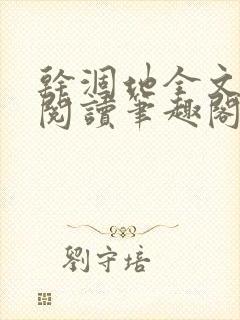 幹涸地全文
閱讀筆趣閣
劉守培